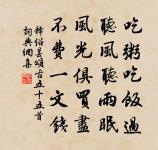 吃粥吃飯過
聽風聽雨眠
風光俱買盡
不費一文錢
釋紹曇頌古五十五首
詞典網集